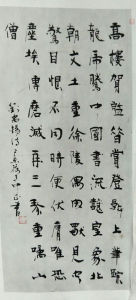 高樓賀監昔曾登壁上筆蹤
龍虎騰中國書流皇象北
朝文士重徐陵偶因獨見空
驚目恨不同時便伏膺唯恐
塵埃轉磨滅再三珍重囑山
僧
劉禹錫詩